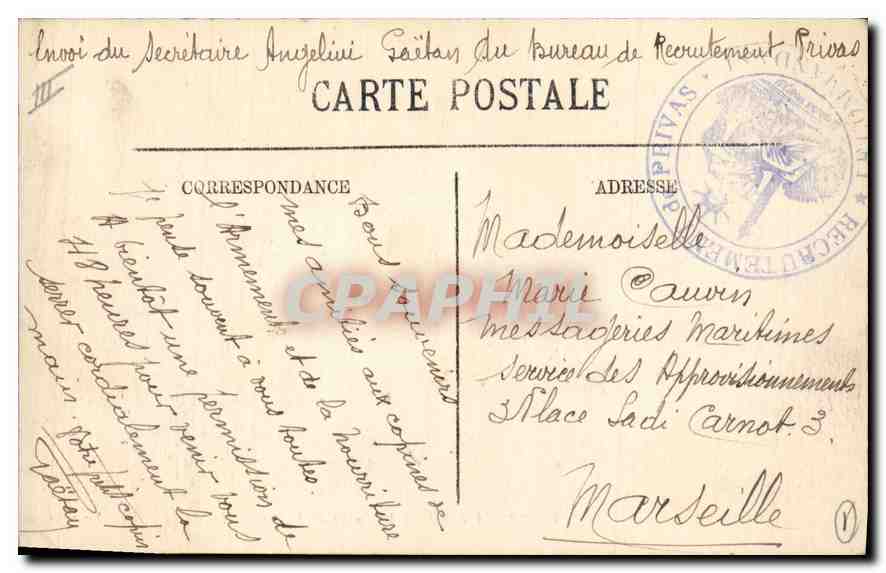 Envoi du Secrétaire Angelini Gaëtan du Bureau de Recrutement Privas
III
CARTE POSTALE
CORRESPONDANCE
Bons souvenirs
mes amitiés aux copines de
l'Armement et de la Nourriture
Je pense souvent à vous toutes.
A bientôt une permission de
48 heures pour venir vous
serrer cordialement la
main. Votre petit copin
Gaëtan
ADRESSE
Mademoiselle
Marie Cauvin
Messageries Maritimes
Service des Approvisionnements
3 Place Sadi Carnot. 3.
Marseille
RECRUTEMENT de PRIVAS
CPAPHIL